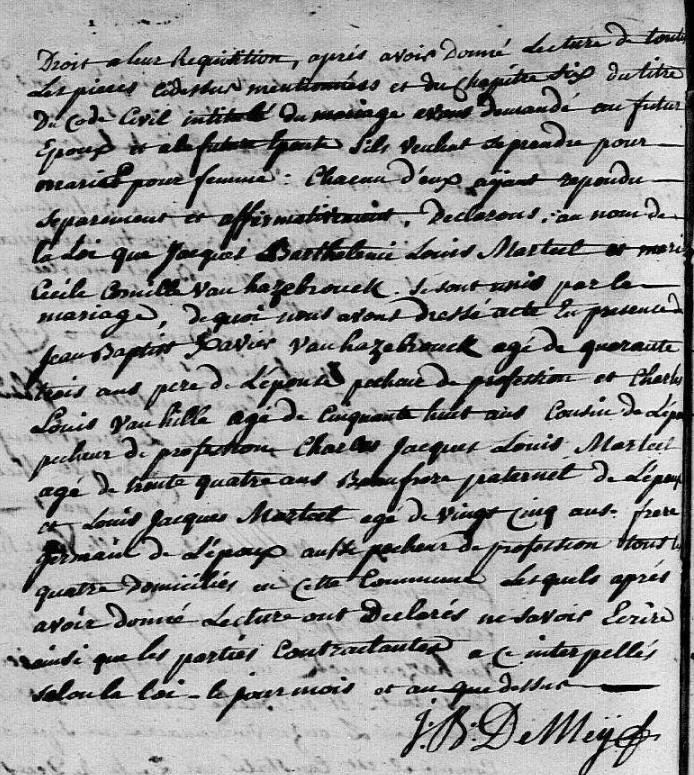 Droit a leur Requisition, aprés avoir Donné Lecture de toutes
Les pieces cidessus mentionnées et du Chapitre Six du titre
Du Code Civil intitulé du mariage avons demandé au futur
Epoux et ala future Epouse s'ils veulent se prendre pour
mari et pour femme : Chacun d'eux ayant repondu
separement et affirmativement, Declarons, au nom de
la Loi que Jacques Barthelemi Louis Marteel et marie
Cecile Camille Van hazebrouck. Se sont unis par le
mariage, de quoi nous avons dressé acte En presence de
Jean Baptist Xavier Vanhazebrouck agé de quarante
trois ans pére de L'epouse pecheur de profession et Charles
Louis Vanhille agé de Cinquante huit ans Cousin de L'epouse
pecheur de profession Charles Jacques Louis Marteel
agé de trente quatre ans Beaufrere paternel de L'epoux
et Louis Jacques Marteel agé de vingt Cinq ans frere
germain de L'époux aussi pecheur de profession tous les
quatre Domiciliés en Cette Commune Lesquels aprés
avoir donné Lecture ont Declarés ne savoir Ecrire
ainsi que les parties Contractantes a ce interpellés
selon la Loi - le jour mois et an que dessus
J. B. DeMey